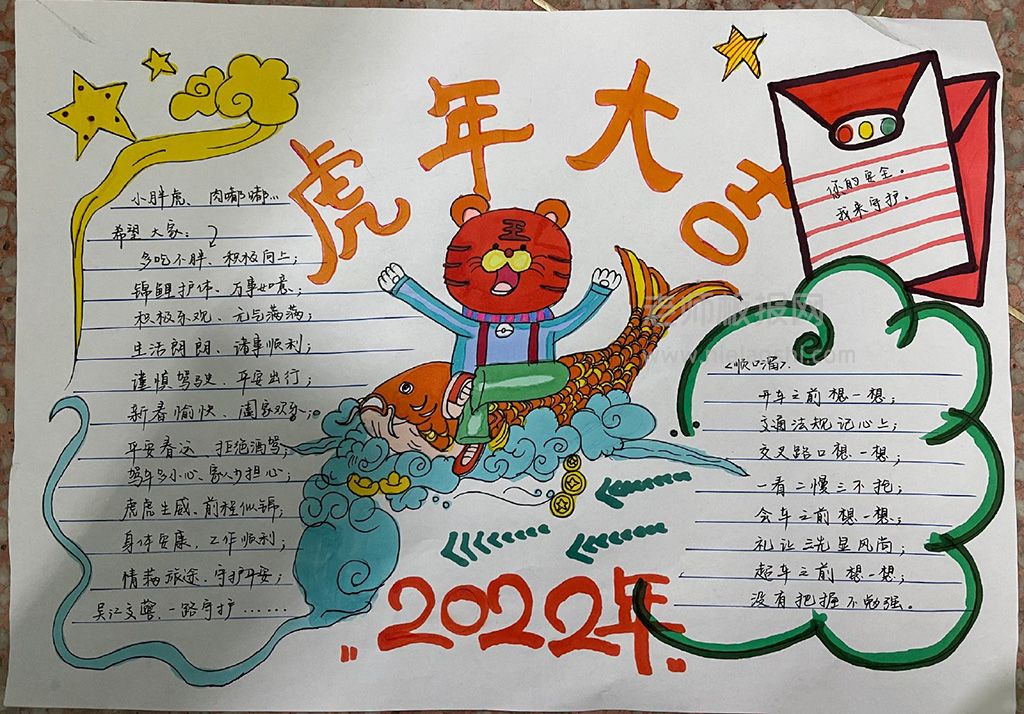 虎年大吉
小胖虎、肉嘟嘟...
希望大家：
多吃不胖、积极向上；
锦鲤护体、万事如意；
积极乐观、元气满满；
生活朗朗、诸事顺利；
谨慎驾驶、平安出行；
新春愉快、阖家欢乐。
平安春运、拒绝酒驾；
驾车多小心、家人少担心；
虎虎生威、前程似锦；
身体安康、工作顺利；
情满旅途、守护平安；
吴江交警、一路守护......
你的安全。
我来守护。
老师板报网
<顺口溜>：
开车之前想一想；
交通法规记心上；
交叉路口想一想；
一看二慢三不抢；
会车之前想一想；
礼让三先显风尚；
超车之前想一想；
没有把握不勉强。
"2022年"
王